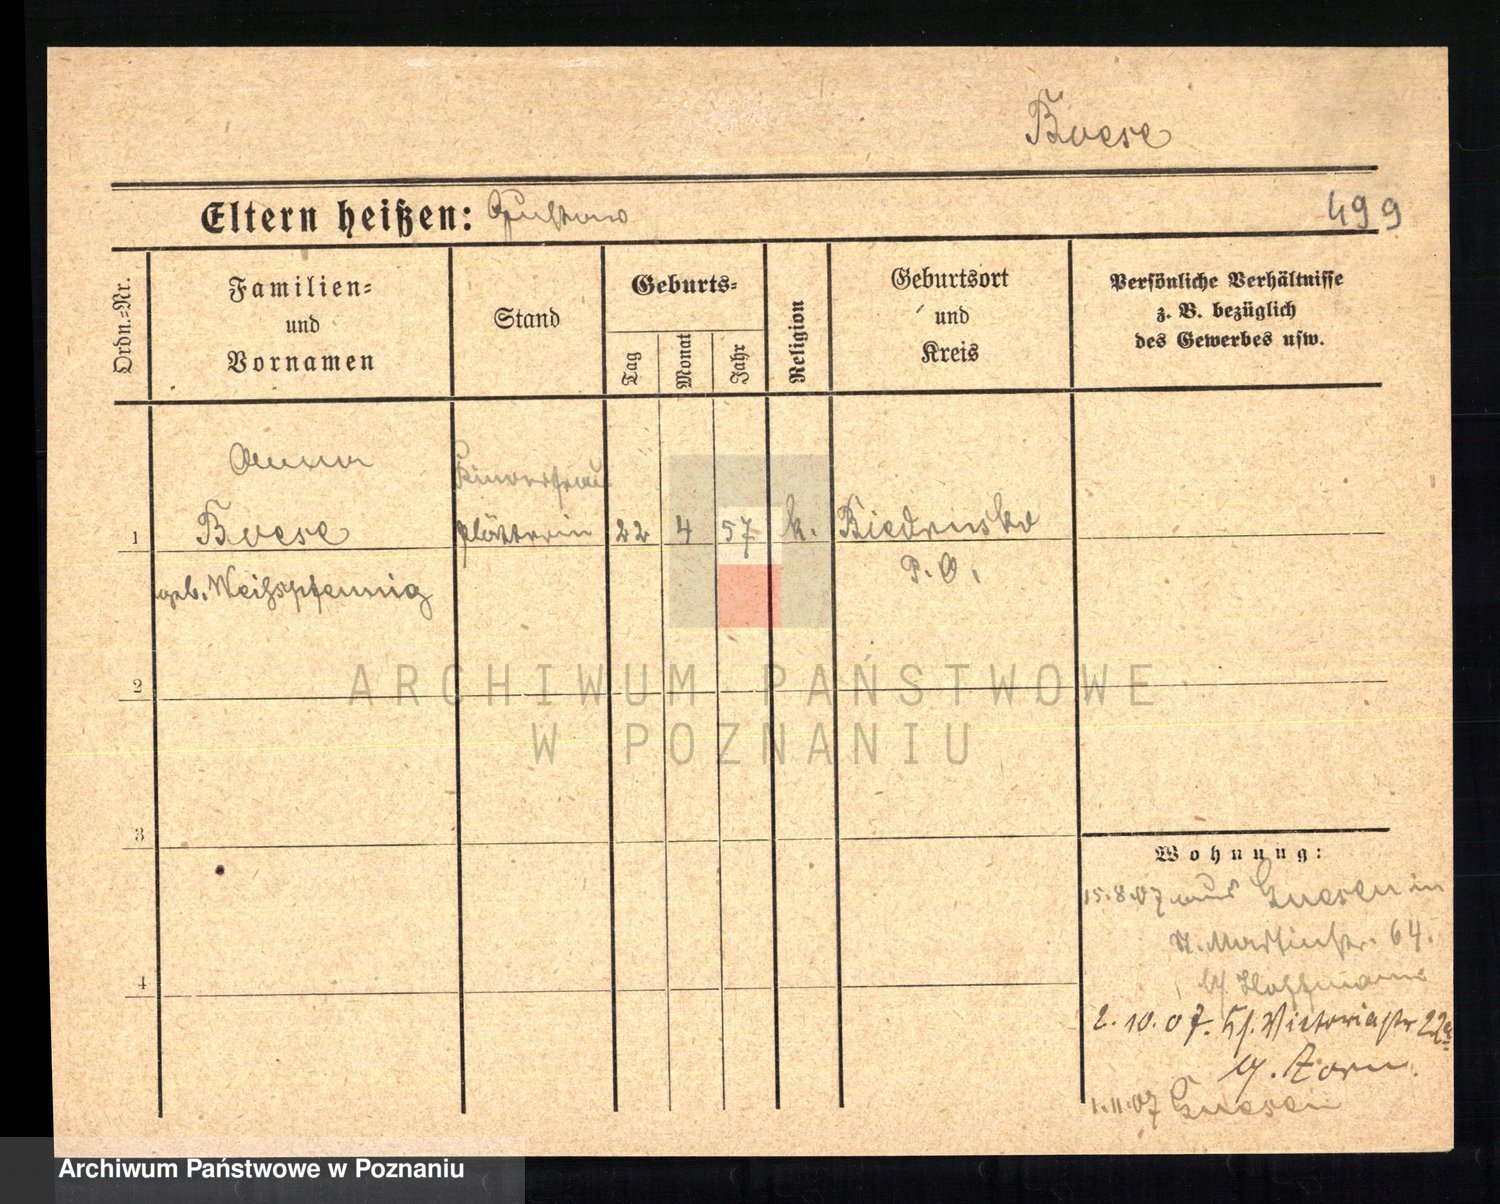 Boese
Eltern heißen: Gustav
499
Ordn.-Nr.
Familien-
und
Vornamen
Stand
Geburts-
Tag
Monat
Jahr
Religion
Geburtsort
und
Kreis
Persönliche Verhältnisse
z. B. bezüglich
des Gewerbes usw.
Anna
Kinderfrau
1 Boese plätterin 22 4 57 k. Biedrusko
geb. Weihspfennig
P. O.
2
ARCHIWUM PAŃSTWOWE
W POZNANIU
3
Wohnung:
15.8.07 aus Gnesen in
St. Martinstr. 64.
b/ Hoffmann
4
2.10.07. Victoriastr 22
b/. Zorn.
1.11.07 Gnesen
Archiwum Państwowe w Poznaniu